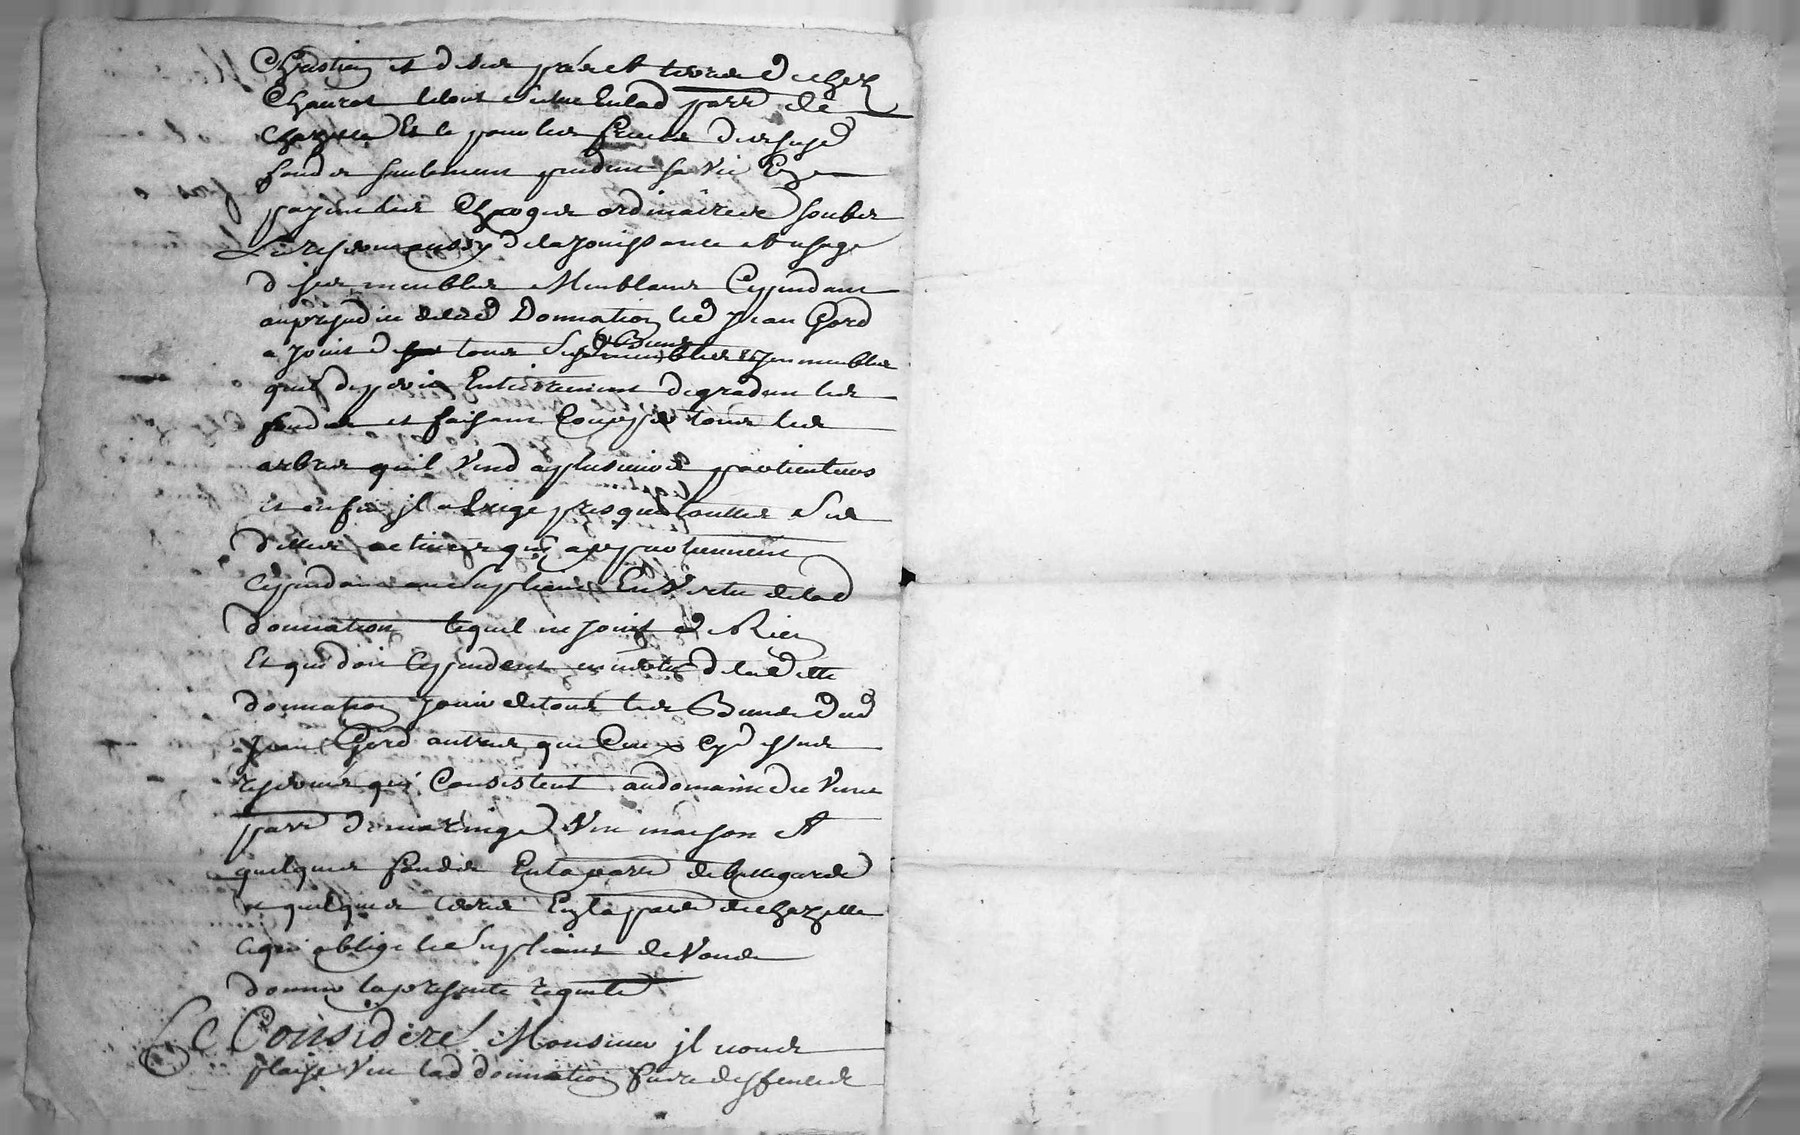 et de ses prés et terres de chez
Chauret le tout situé en lad parr de
Chazelle Et le pour les
fondes seulement pendant sa vie En
payant les Charges ordinaires Soubes
La reserve aussy de la jouissance et usage
de ses meubles Meublants Cependant
au prejudice de lad Donnation led Jean Gord
a jouit de tous Ses Biens meubles et jmmeubles
quil Entierement degradant les
fondes et faisant Couper tous les
arbres quil Vend a plusieurs particuliers
et enfin jl a Exigé presque touttes Ses
dettes actives qui appartiennent
Cependant au Supliant En Vertu de lad
donnation lequel ne jouit de Rien
Et qui doit Cependant en vertu de la ditte
donnation jouir de tous les Biens dud
Jean Gord autres que Ceux Cy dessus
reservés qui Consistent au domaine de
parr de maringe Une maison et
quelques fondes En la parr de bellegarde
et quelques terres En la parr de chazelle
ce qui oblige le Supliant de Vous
donner la presente requette
Ce Consideré Monsieur jl vous
plaise Veu lad donnation faire deffences